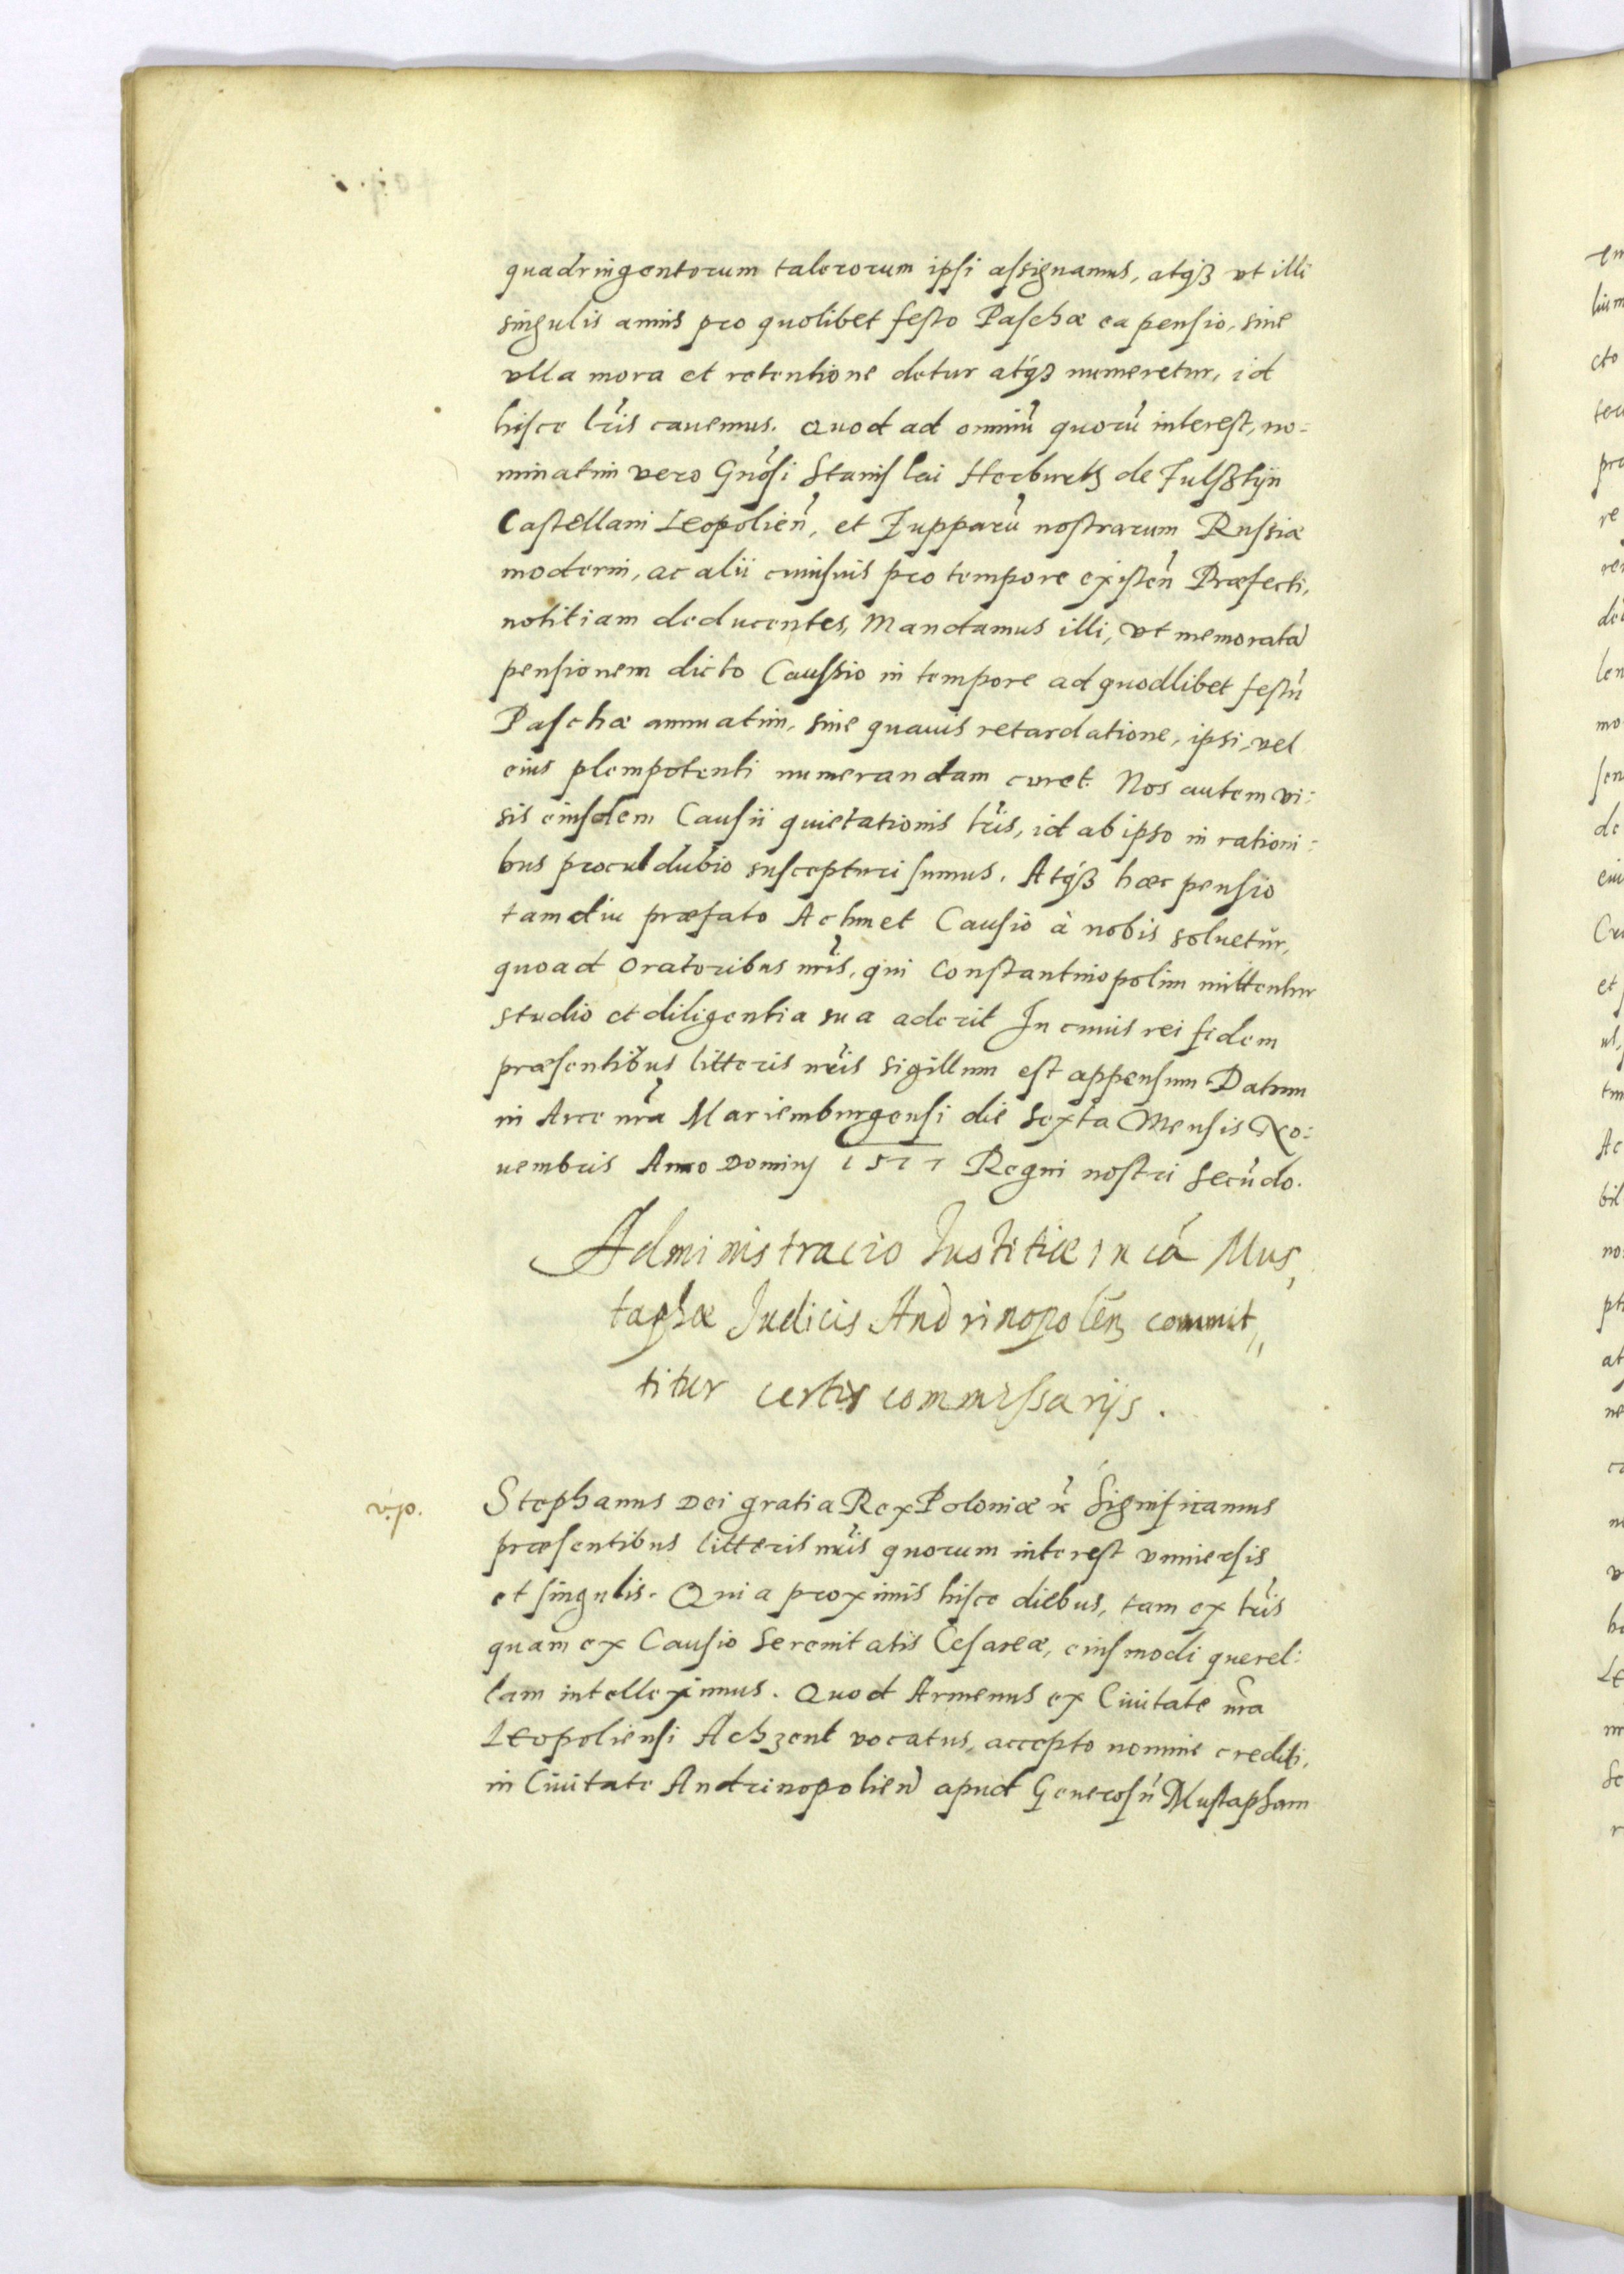 quadringentorum talerorum ipsi assignamus, atqꝫ vt illi
singulis annis pro quolibet festo Paschæ ea pensio, sine
vlla mora et retentione detur atqꝫ numeretur, id
hisce lr̃is cauemus. Quod ad omniũ quorũ interest, no=
minatim vero Gnõsi Stanislai Herburth de Fulsztijn
Castellani Leopolien̄, et Zupparũ nostrarum Russiæ
moderni, ac alii cuiusuis pro tempore existen̄ Præfecti,
notitiam deducentes, Mandamus illi, vt memoratã
pensionem dicto Caussio in tempore ad quodlibet festũ
Paschæ annuatim, sine quauis retardatione, ipsi, vel
eius plenipotenti numerandam curet. Nos autem vi:
sis eiusdem Causii quietationis lr̃is, id ab ipso in rationi:
bus procul dubio suscepturi sumus. Atqꝫ hæc pensio
tamdiu præfato Achmet Causio à nobis soluetur,
quoad Oratoribus nr̃is, qui Constantinopolim mittentur
studio et diligentia sua aderit In cuius rei fidem
præsentibus litteris nr̃is sigillum est appensum Datum
in Arce nr̃a Mariemburgensi die Sexta Mensis No:
uembris Anno Domini 1577 Regni nostri Secũdo.
Administracio Iustitiæ in cã Mus,
taphæ Iudicis Andrinopolen̄ commit,,
titur certis commissarijs.
v.p.
Stephanus Dei gratia Rex Poloniæ &c̃ Significamus
præsentibus litteris nr̃is quorum interest vniuersis
et singulis. Quia proximis hisce diebus, tam ex lr̃is
quam ex Causio Serenitatis Cesareæ, eiusmodi querel:
lam intelleximus. Quod Armenus ex Ciuitate nr̃a
Leopoliensi Achzent vocatus, accepto nomine crediti,
in Ciuitate Andrinopolien̄ apud Generosũ Mustapham